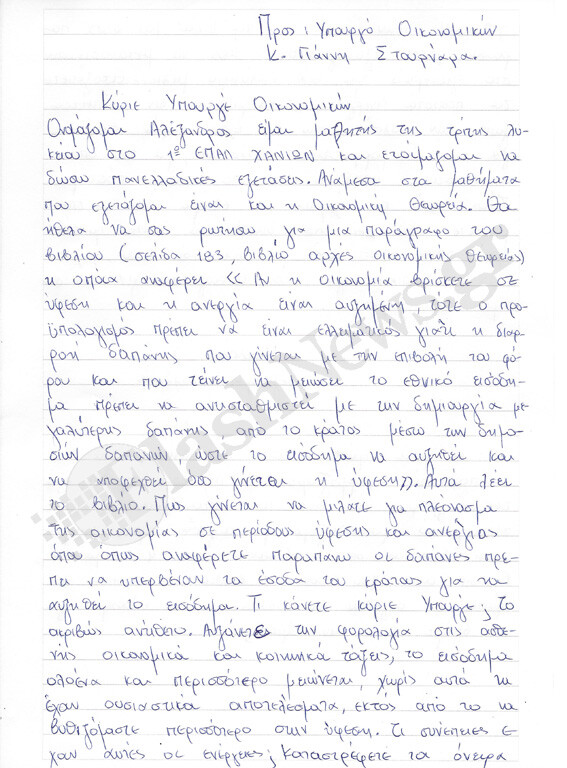 Προς: Υπουργό Οικονομικών
Κ. Γιάννη Στουρνάρα.
Κύριε Υπουργέ Οικονομικών
Ονομάζομαι Αλέξανδρος είμαι μαθητής της τρίτης λυ-
κείου στο 1ο ΕΠΑΛ ΧΑΝΙΩΝ και ετοιμάζομαι να
δώσω πανελλαδικές εξετάσεις. Ανάμεσα στα μαθήματα
που εξετάζομαι είναι και η Οικονομική Θεωρεία. Θα
ήθελα να σας ρωτήσω για μια παράγραφο του
βιβλίου (σελίδα 183, βιβλίο αρχές οικονομικής θεωρείας)
η οποία αναφέρει << Αν η οικονομία βρίσκετε σε
ύφεση και η ανεργία είναι αυξημένη, τότε ο προ-
ϋπολογισμός πρέπει να είναι ελλειματικός γιατί η διαρ-
ροή δαπάνης που γίνεται με την επιβολή του φό-
ρου και που τείνει να μειώσει το εθνικό εισόδη-
μα πρέπει να αντισταθμιστεί με την δημιουργία με-
γαλύτερης δαπάνης από το κράτος μέσω των δημο-
σιών δαπανών, ώστε το εισόδημα να αυξηθεί και
να αποφεχθεί όσο γίνεται η ύφεση>>. Αυτά λέει
το βιβλίο. Πως γίνεται να μιλάτε για πλεόνασμα
της οικονομίας σε περίοδους ύφεσης και ανεργίας
όπου όπως αναφέρετε παραπάνω οι δαπάνες πρέ-
πει να υπερβένουν τα έσοδα του κράτους για να
αυξηθεί το εισόδημα. Τι κάνετε κύριε Υπουργέ; το
ακριβώς αντίθετο. Αυξάνετε την φορολογία στις ασθε-
νής οικονομικά και κοινωνικά τάξεις, το εισόδημα
ολοένα και περισσότερο μειώνεται, χωρίς αυτά να
έχουν ουσιαστικά αποτελέσματα, εκτός από το να
βυθιζόμαστε περισσότερο στην ύφεση. Τι συνέπειες έ-
χουν αυτές οι ενέργειες; Καταστρέφετε τα όνειρα
FlashNews.gr